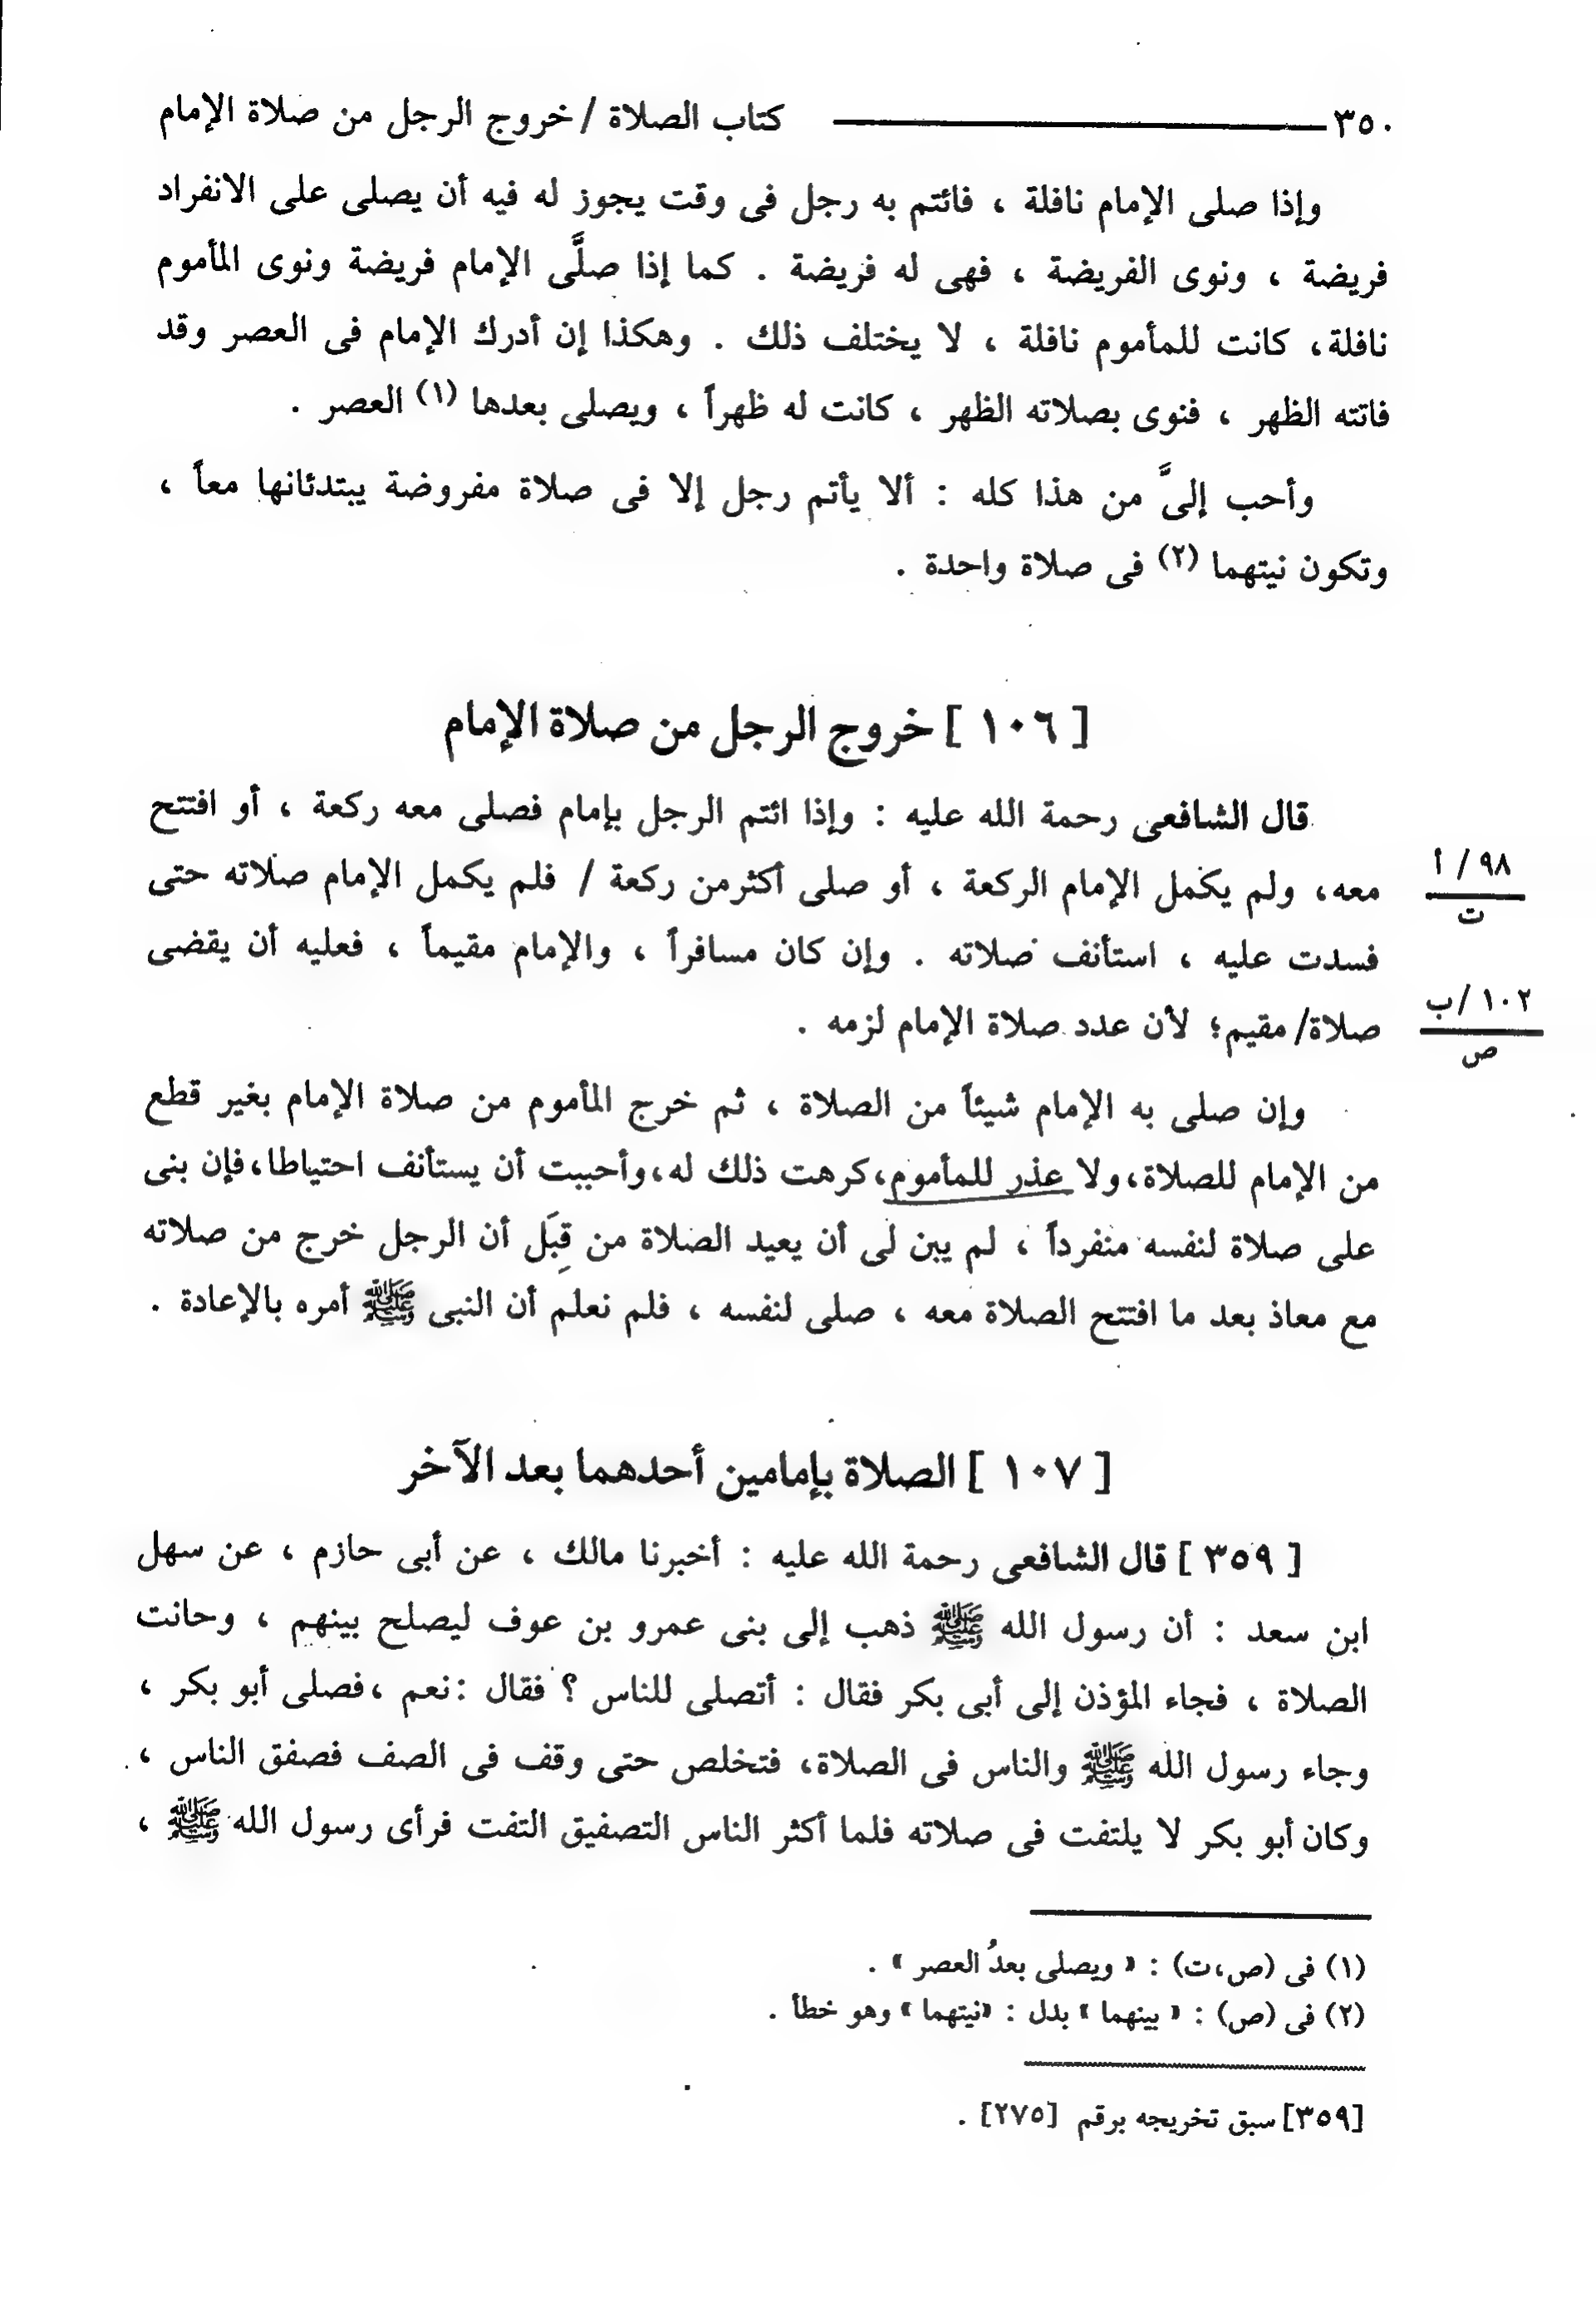 ٣٥٠ ــــــــــــ كتاب الصلاة / خروج الرجل من صلاة الإمام
وإذا صلى الإمام نافلة ، فائتم به رجل فى وقت يجوز له فيه أن يصلى على الانفراد
فريضة ، ونوى الفريضة ، فهى له فريضة . كما إذا صلَّى الإمام فريضة ونوى المأموم
نافلة، كانت للمأموم نافلة ، لا يختلف ذلك . وهكذا إن أدرك الإمام فى العصر وقد
فاتته الظهر ، فنوى بصلاته الظهر ، كانت له ظهراً ، ويصلى بعدها (١) العصر .
وأحب إلىَّ من هذا كله : ألا يأتم رجل إلا فى صلاة مفروضة يبتدئانها معاً ،
وتكون نيتهما (٢) فى صلاة واحدة .
[ ١٠٦ ] خروج الرجل من صلاة الإمام
قال الشافعى رحمة الله عليه : وإذا ائتم الرجل بإمام فصلى معه ركعة ، أو افتتح
معه، ولم يكمل الإمام الركعة ، أو صلى أكثر من ركعة / فلم يكمل الإمام صلاته حتى
٩٨ / أ
ت
فسدت عليه ، استأنف صلاته . وإن كان مسافراً ، والإمام مقيماً ، فعليه أن يقضى
صلاة/ مقيم؛ لأن عدد صلاة الإمام لزمه .
١٠٢ /ب
ص
وإن صلى به الإمام شيئاً من الصلاة ، ثم خرج المأموم من صلاة الإمام بغير قطع
من الإمام للصلاة،ولا عذر للمأموم،كرهت ذلك له،وأحببت أن يستأنف احتياطا،فإن بنى
على صلاة لنفسه منفرداً ، لم يبن لى أن يعيد الصلاة من قِبَل أن الرجل خرج من صلاته
مع معاذ بعد ما افتتح الصلاة معه ، صلى لنفسه ، فلم نعلم أن النبى ﷺ أمره بالإعادة .
[ ١٠٧ ] الصلاة بإمامين أحدهما بعد الآخر
[ ٣٥٩ ] قال الشافعى رحمة الله عليه : أخبرنا مالك ، عن أبى حازم ، عن سهل
ابن سعد : أن رسول الله ﷺ ذهب إلى بنى عمرو بن عوف ليصلح بينهم ، وحانت
الصلاة ، فجاء المؤذن إلى أبى بكر فقال : أتصلى للناس ؟ فقال :نعم ،فصلى أبو بكر ،
وجاء رسول الله ﷺ والناس فى الصلاة، فتخلص حتى وقف فى الصف فصفق الناس ،
وكان أبو بكر لا يلتفت فى صلاته فلما أكثر الناس التصفيق التفت فرأى رسول الله ﷺ ،
(١) فى (ص،ت) : « ويصلى بعدُ العصر » .
(٢) فى (ص) : « بينهما » بدل : «نيتهما » وهو خطأ .
[٣٥٩] سبق تخريجه برقم [٢٧٥] .